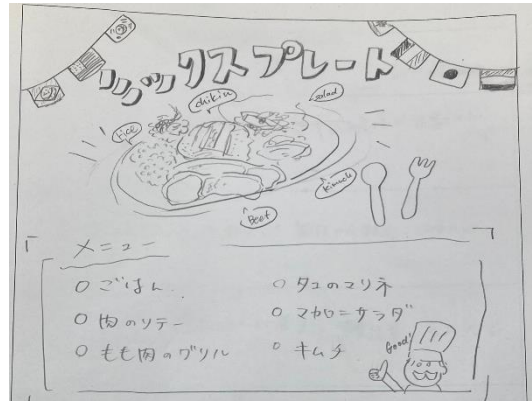 ミックスプレート
chikin
salad
rice
kimuch
Beef
メニュー
○ ごはん
○ 肉のソテー
○ もも肉のグリル
○ タコのマリネ
○ マカロニサラダ
○ キムチ
Good!